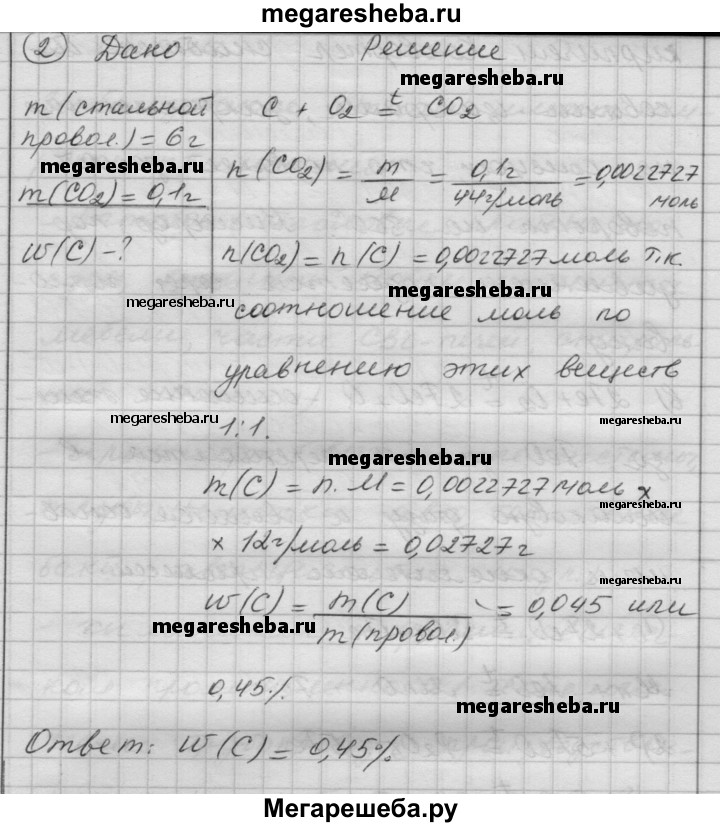 megaresheba.ru
2 Дано Решение
megaresheba.ru
m (стальной C + O₂ =ᵗ CO₂
провол.) = 6 г
megaresheba.ru
m(CO₂) = 0,1г n (CO₂) = m/M = 0,1г/44г/моль = 0,0022727 моль
W (C) - ? n(CO₂) = n (C) = 0,0022727 моль т.к.
megaresheba.ru megaresheba.ru
соотношение моль по
уравнению этих веществ
megaresheba.ru
1:1.
megaresheba.ru
m(C) = n. M = 0,0022727 моль x
megaresheba.ru
x 12г/моль = 0,02727г
megaresheba.ru
W (C) = m(C)/m(провол.) = 0,045 или
megaresheba.ru
0,45%.
megaresheba.ru
Ответ: W (C) = 0,45%.
Мегарешеба.ру